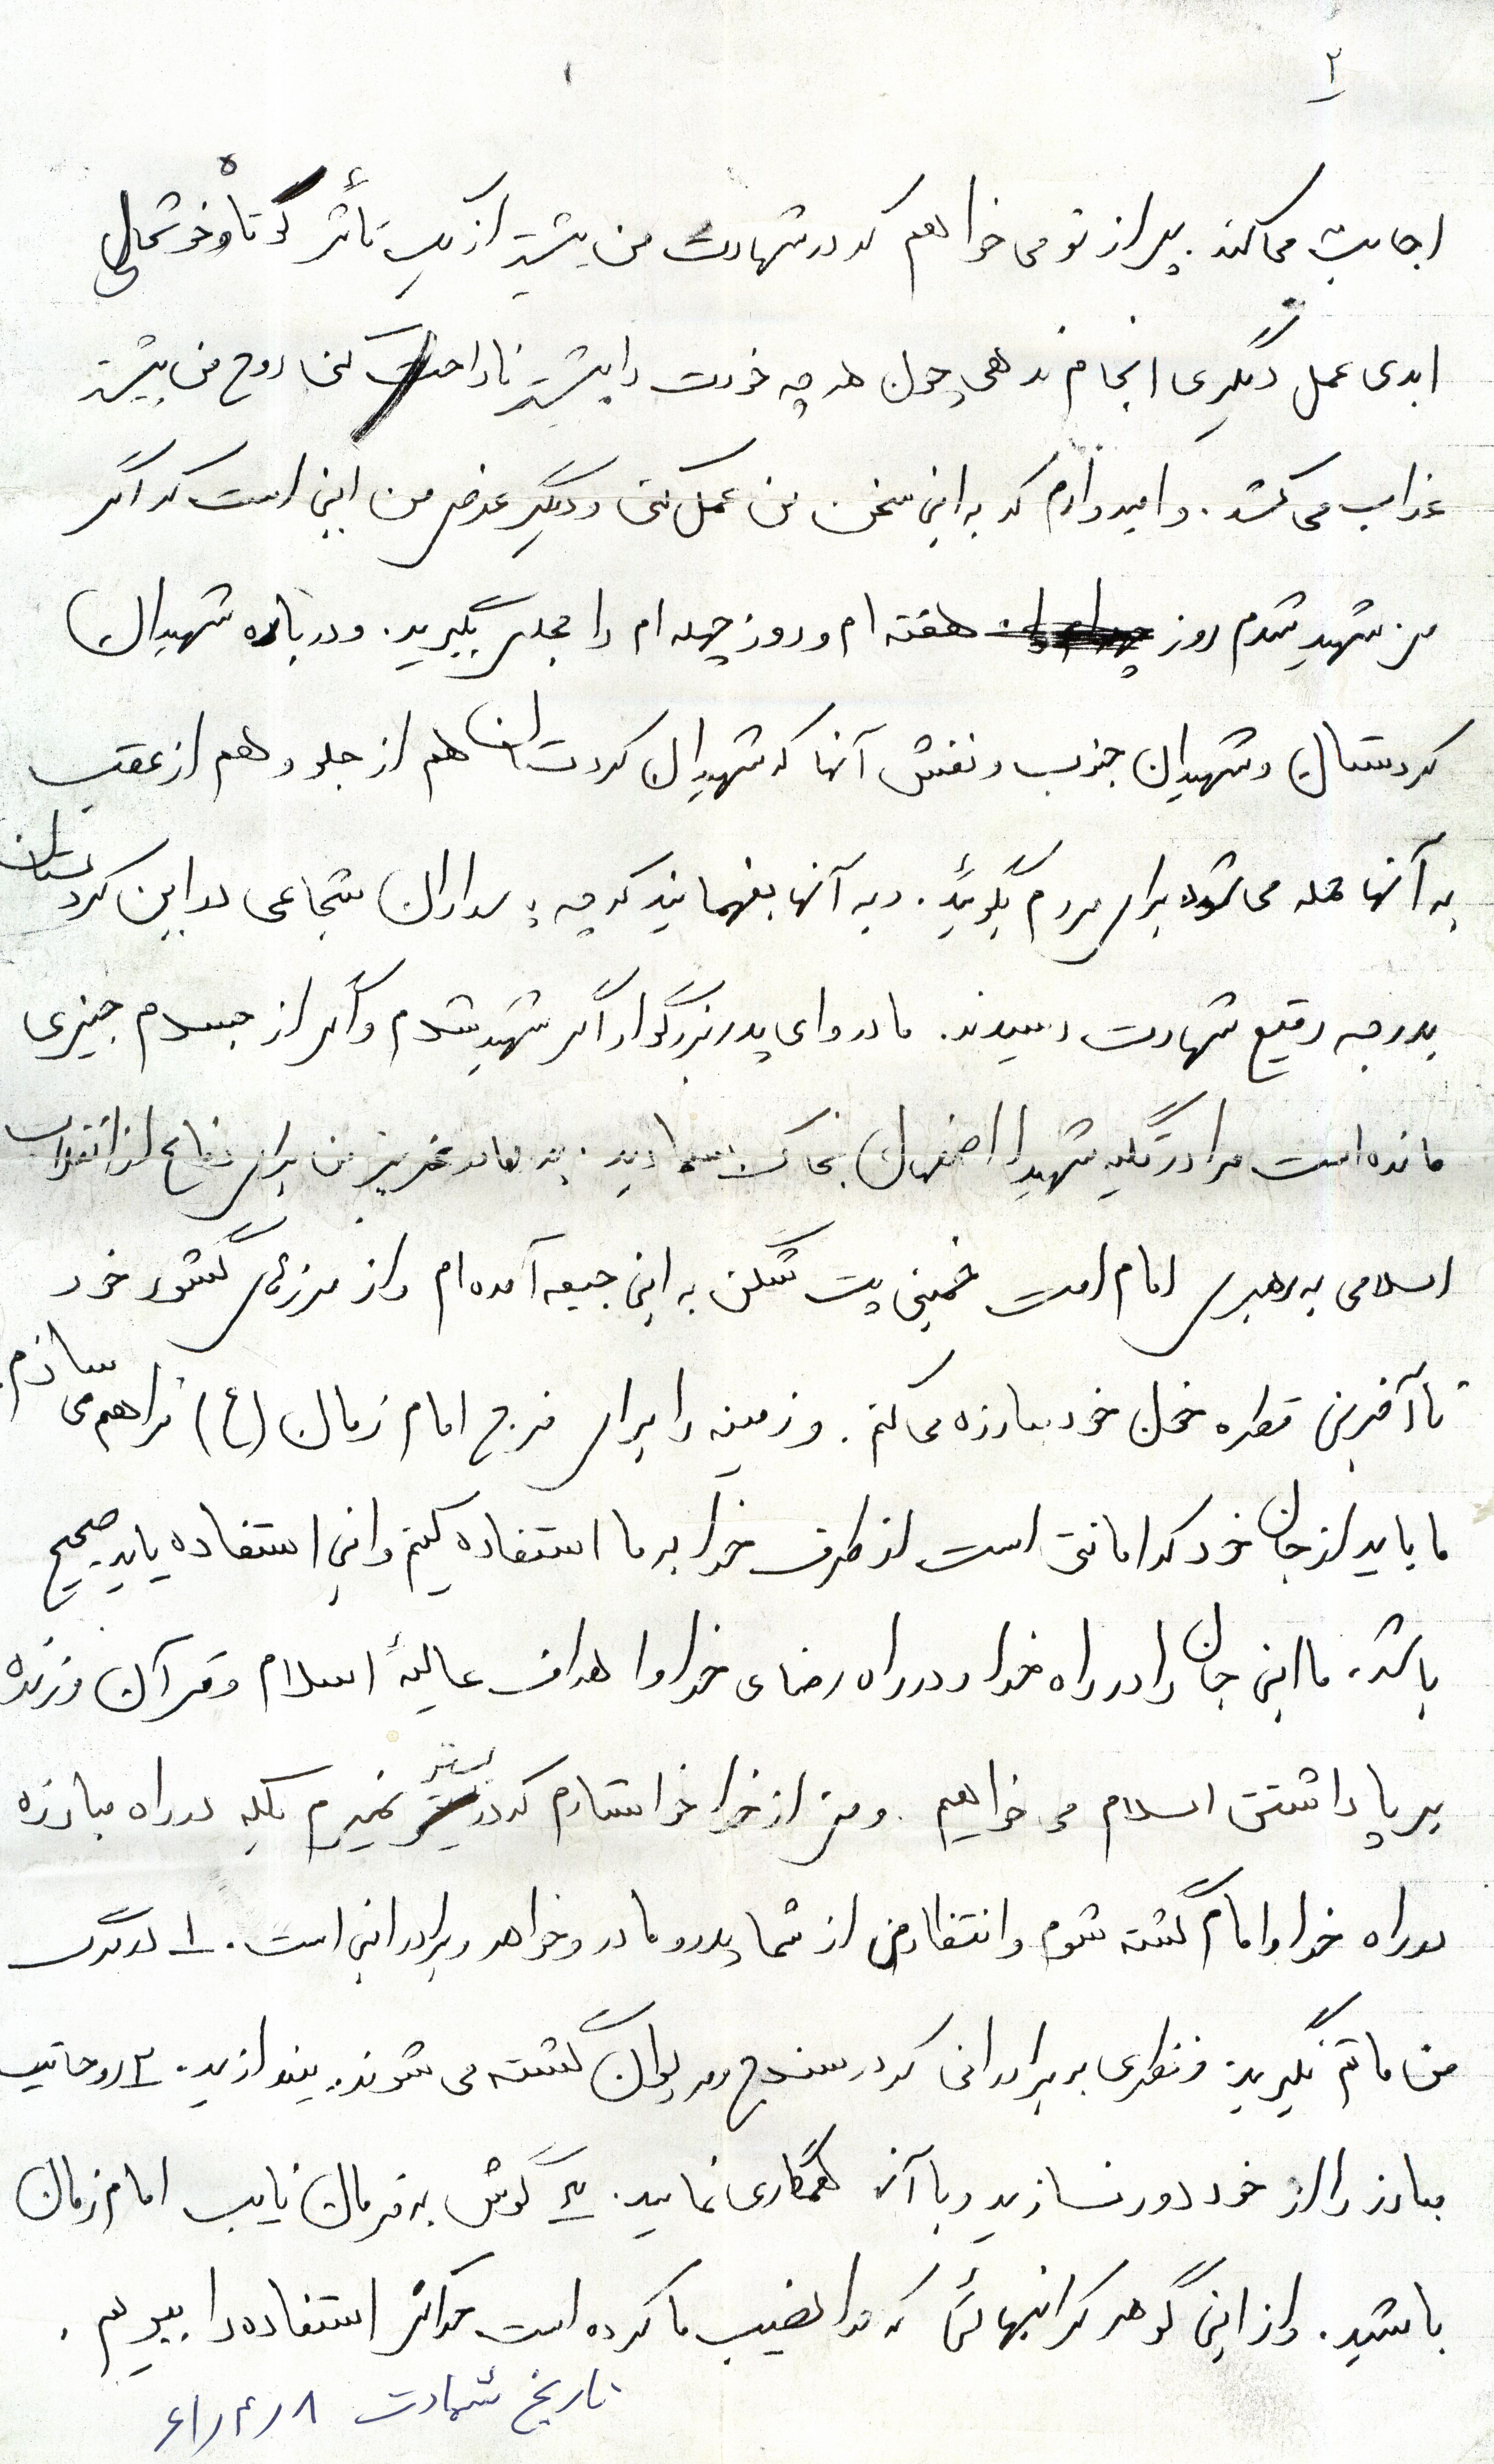 ۲
اجابت می کند. پس از تو می خواهم که در شهادت من بیشتر از یک تأثر کوتاه و خوشحالی
ابدی عمل دیگری انجام ندهی چون هر چه خودت را بیشتر ناراحت کنی روح من بیشتر
عذاب می کشد. و امیدوارم که به این سخن من عمل کنی و دیگر عرض من این است که اگر
من شهید شدم روز هفته ام و روز چهله ام را مجلس بگیرید. و درباره شهیدان
کردستان و شهیدان جنوب و نقش آنها که شهیدان کردستان هم از جلو و هم از عقب
به آنها حمله می شود برای مردم بگوئید. و به آنها بفهمانید که چه پاسداران شجاعی در این کردستان
بدرجه رفیع شهادت رسیدند. مادر و ای پدر بزرگوار اگر شهید شدم و اگر از جسدم چیزی
مانده است مرا در تکیه شهدا اصفهان بخاک بسپارید. مادر عزیز من برای دفاع از انقلاب
اسلامی به رهبری امام امت خمینی بت شکن به این جبهه آمده ام و از مرزهای کشور خود
تا آخرین قطره خون خود مبارزه می کنم. و زمینه را برای فرج امام زمان (ع) فراهم می سازم.
ما باید از جان خود که امانتی است از طرف خدا به ما استفاده کنیم و این استفاده باید صحیح
باشد. ما این جان را در راه خدا و در راه رضای خدا و اهداف عالیهٔ اسلام و قرآن و زنده
بر پا داشتن اسلام می خواهیم. و من از خدا خواستارم که در بستر نمیرم بلکه در راه مبارزه
در راه خدا و امام کشته شوم و انتظار من از شما پدر و مادر و خواهر و برادر این است. ۱ـ در مرگ
من ماتم نگیرید و نظری بر برادرانی که در سنندج و مریوان کشته می شوند بیندازید. ۲ـ روحانیت
مبارز را از خود دور نسازید و با آنها همکاری نمایید. ۳ـ گوش به فرمان نایب امام زمان
باشید. و از این گوهر گرانبهائی که خدا نصیب ما کرده است حداکثر استفاده را ببریم.
تاریخ شهادت ۶۱/۴/۸